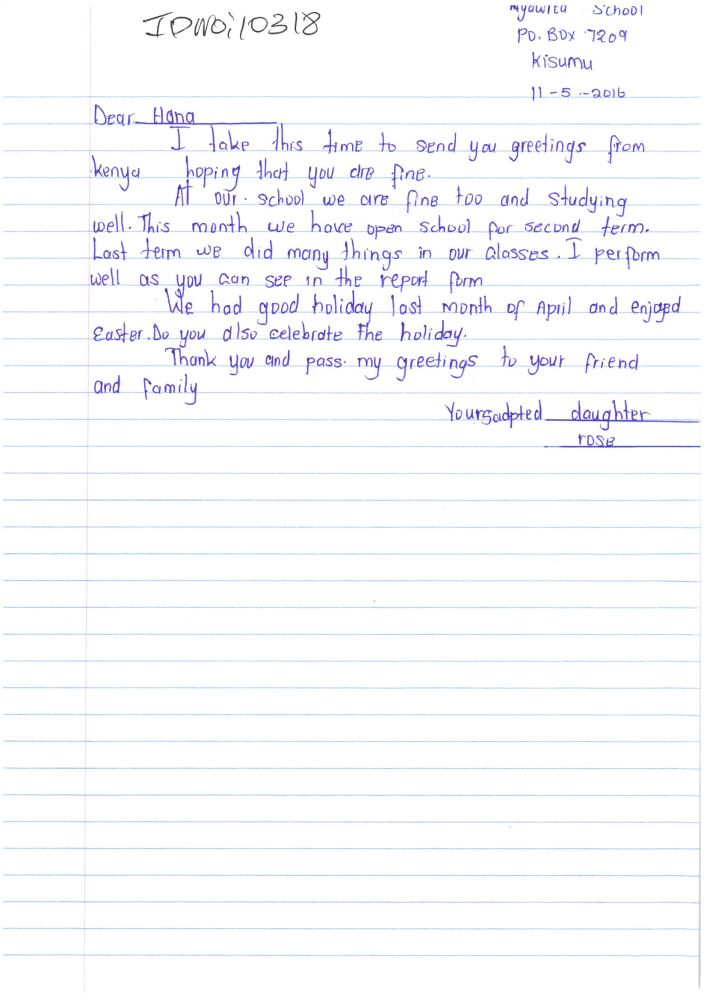 IDNO:10318
School
P.O. BOX 7209
Kisumu
11-5-2016
Dear Hana
I take this time to send you greetings from
kenya hoping that you are fine.
At our school we are fine too and studying
well. This month we have open school for second term.
Last term we did many things in our classes. I perform
well as you can see in the report form
We had good holiday last month of April and enjoyed
Easter. Do you also celebrate the holiday.
Thank you and pass my greetings to your friend
and family
Yours adpted daughter
rose